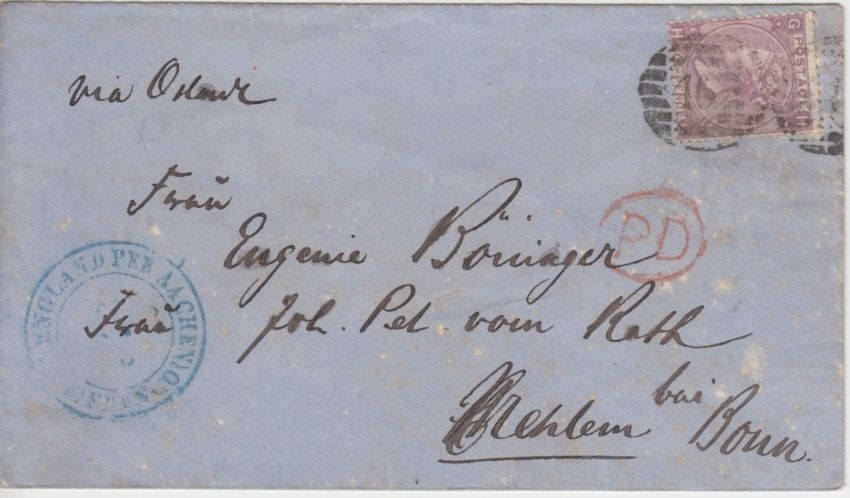 via Ostende
G POSTAGE H
H SIX PENCE G
Frau
Eugenie Böninger
PD
ENGLAND PER AACHEN
FRANCO
Frau Joh. Pet. vom Rath
Mehlem bei Bonn.